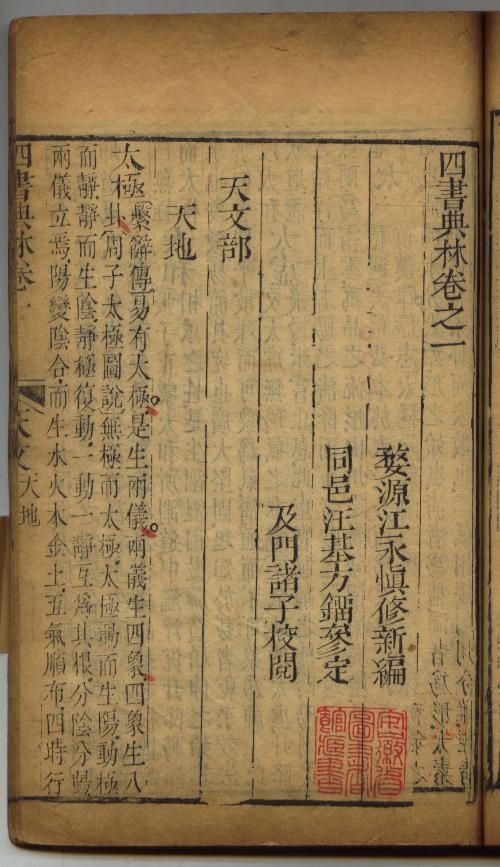 四書典林卷之一
婺源江永慎修新編
同邑汪基方鐂參定
及門諸子校閱
天文部
天地
太極繫辭傳易有太極是生兩儀兩儀生四象四象生八
卦周子太極圖說無極而太極太極動而生陽動極
而靜靜而生陰靜極復動一動一靜互爲其根分陰分陽
兩儀立焉陽變陰合而生水火木金土五氣順布四時行
四書典林卷一
天文
天地
安徽省
圖書館
藏書